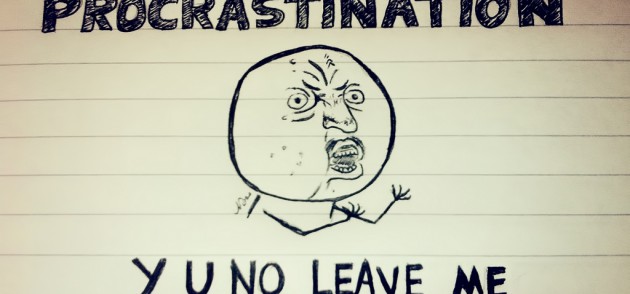 PROCRASTINATION
Y U NO LEAVE ME